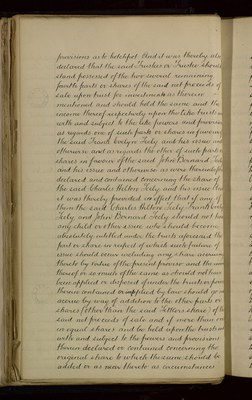 provisions as to hotchpot And it was thereby also
declared that the said Trustees or Trustee should
stand possessed of the two several remaining
fourth parts or shares of the said net proceeds of
sale upon trust for investments as therein
mentioned and should hold the same and the
income thereof respectively upon the like trusts and
with and subject to the like powers and provisions
as regards one of such parts or shares in favour of
the said Frank Evelyn and his issue and
otherwise and as regards the other of such parts or
shares in favour of the said John Bernard
and his issue and otherwise as were thereinbefore
declared and contained concerning the share of
the said Charles Hilton and his issue And
it was thereby provided in effect that if any of
them the said Charles Hilton Frank Evelyn
and John Bernard should not have
any child or other issue who should become
absolutely entitled under the trusts aforesaid the
part or share in respect of which such failure of
issue should occur including any share accruing
thereto by virtue of the present provision and the income
thereof or so much of the same as should not have
been applied or disposed of under the trusts or powers
therein contained or implied by law should go and
accrue by way of addition to the other parts or
shares (other than the said share) of the
said net proceeds of sale and if more than one
in equal shares and be held upon the trusts and
with and subject to the powers and provisions
therein declared or contained concerning the
original share to which the same should be
added or as near thereto as circumstances